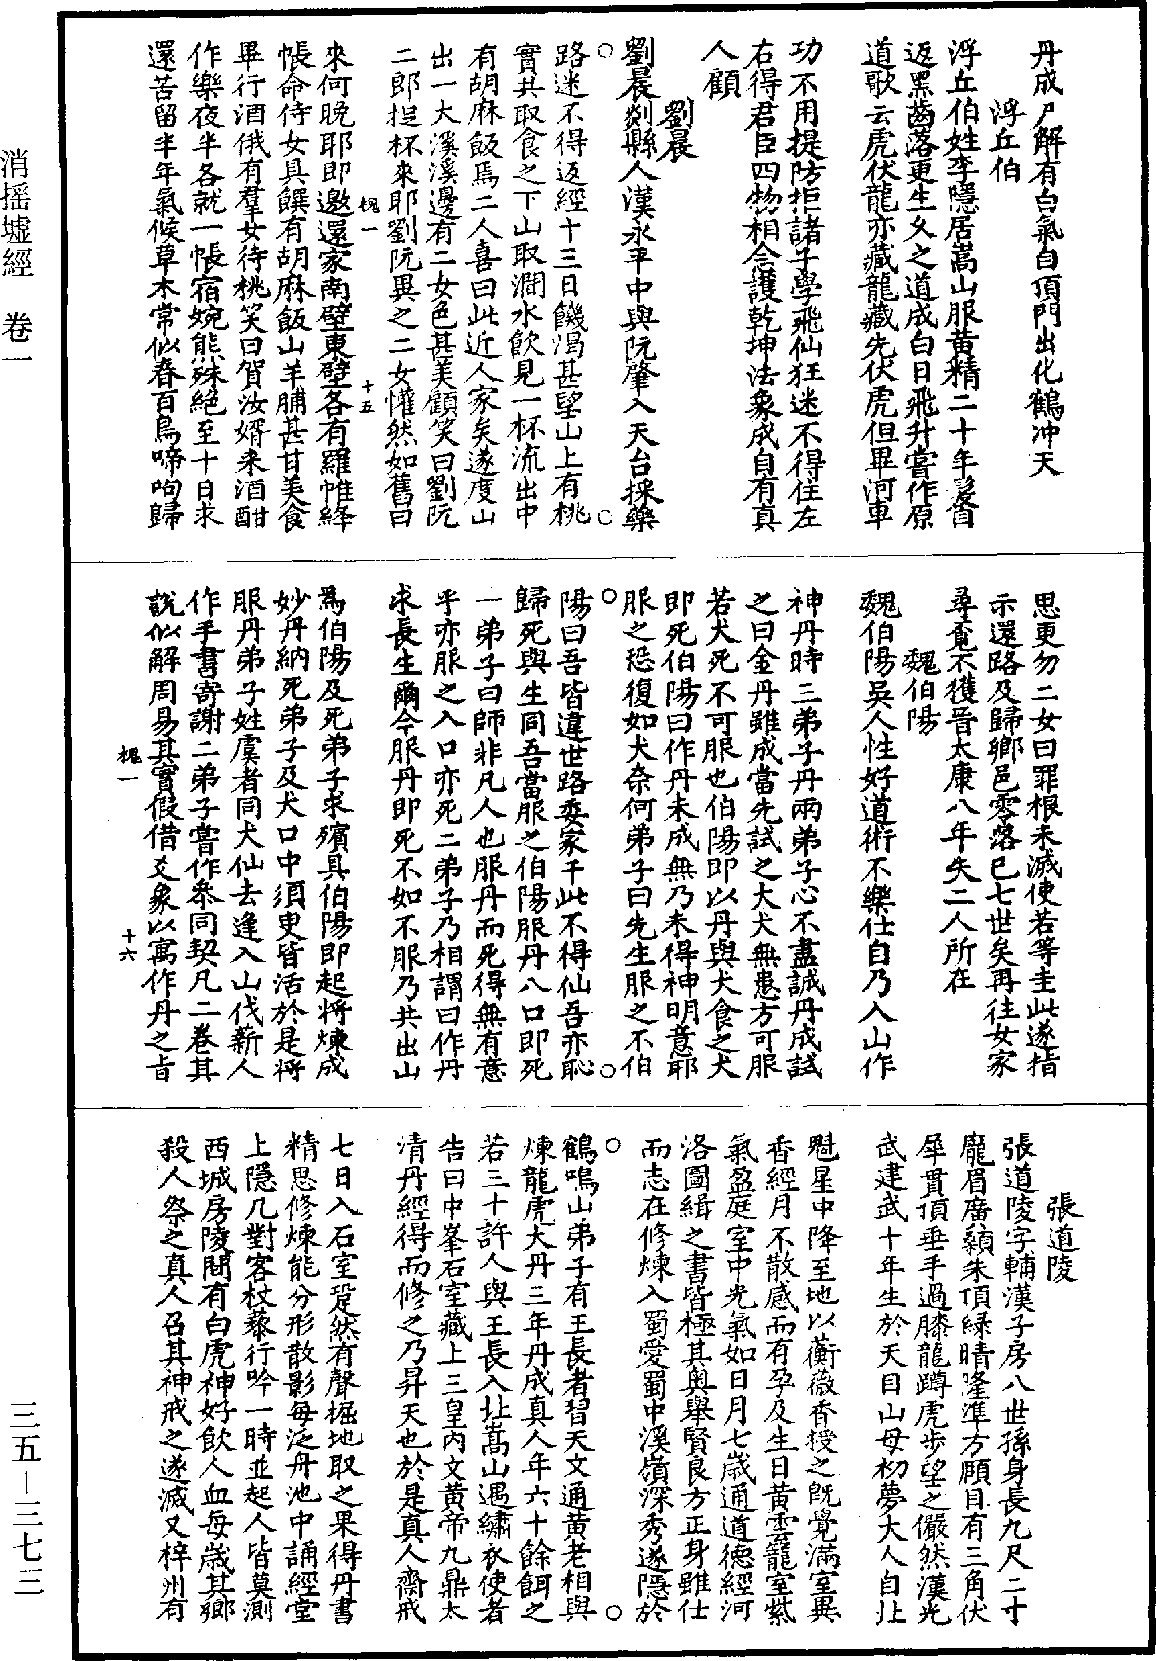 消摇墟經　卷一
三五—三七三
丹成尸解有白氣自頂門出化鶴冲天
浮丘伯
浮丘伯姓李隱居嵩山服黄精二十年髮白
返黑齒落更生久之道成白日飛升嘗作原
道歌云虎伏龍亦藏龍藏先伏虎但畢河車
功不用提防拒諸子學飛仙狂迷不得住左
右得君臣四物相念護乾坤法象成自有真
人顧
劉晨
劉晨剡縣人漢永平中與阮肇入天台採藥
路迷不得返經十三日饑渴甚望山上有桃
實共取食之下山取澗水飲見一杯流出中
有胡麻飯焉二人喜曰此近人家矣遂度山
出一大溪溪邊有二女色甚美顧笑曰劉阮
二郎捉杯來耶劉阮異之二女懽然如舊曰
槐一
十五
來何晚耶即邀還家南壁東壁各有羅帷絳
帳命侍女具饌有胡麻飯山羊脯甚甘美食
畢行酒俄有羣女待桃笑曰賀汝婿來酒酣
作樂夜半各就一帳宿婉態殊絕至十日求
還苦留半年氣候草木常似春百鳥啼呴歸
思更勿二女曰罪根未滅使若等圭此遂指
示還路及歸鄉邑零落已七世矣再往女家
尋覓不獲晉太康八年失二人所在
魏伯陽
魏伯陽吳人性好道術不樂仕自乃入山作
神丹時三弟子丹兩弟子心不盡誠丹成試
之曰金丹雖成當先試之犬犬無患方可服
若犬死不可服也伯陽即以丹與犬食之犬
即死伯陽曰作丹未成無乃未得神明意耶
服之恐復如犬奈何弟子曰先生服之不伯
陽曰吾皆違世路委家于此不得仙吾亦恥
歸死與生同吾當服之伯陽服丹入口即死
一弟子曰師非凡人也服丹而死得無有意
乎亦服之入口亦死二弟子乃相謂曰作丹
求長生爾今服丹即死不如不服乃共出山
爲伯陽及死弟子求殯具伯陽即起将煉成
妙丹納死弟子及犬口中須臾皆活於是将
服丹弟子姓虞者同犬仙去逢入山伐薪人
作手書寄謝二弟子嘗作參同契凡二卷其
說似解周易其實假借爻象以寓作丹之旨
槐一
十六
張道陵
張道陵字輔漢子房八世孫身長九尺二寸
龐眉廣顙朱頂緑睛隆準方頤目有三角伏
犀貫頂垂手過膝龍蹲虎步望之儼然漢光
武建武十年生於天目山母初夢大人自北
魁星中降至地以蘅薇香授之旣覺滿室異
香經月不散感而有孕及生日黄雲籠室紫
氣盈庭室中光氣如日月七歲通道德經河
洛圖緯之書皆極其奥舉賢良方正身雖仕
而志在修煉入蜀愛蜀中溪嶺深秀遂隱於
鶴鳴山弟子有王長者習天文通黄老相與
煉龍虎大丹三年丹成真人年六十餘餌之
若三十許人與王長入北嵩山遇繡衣使者
告曰中峯石室藏上三皇内文黄帝九鼎太
清丹經得而修之乃昇天也於是真人齋戒
七日入石室跫然有聲掘地取之果得丹書
精思修煉能分形散影每泛丹池中誦經堂
上隱几對客杖藜行吟一時並起人皆莫測
西城房陵間有白虎神好飲人血每歲其鄉
殺人祭之真人召其神戒之遂滅又梓州有